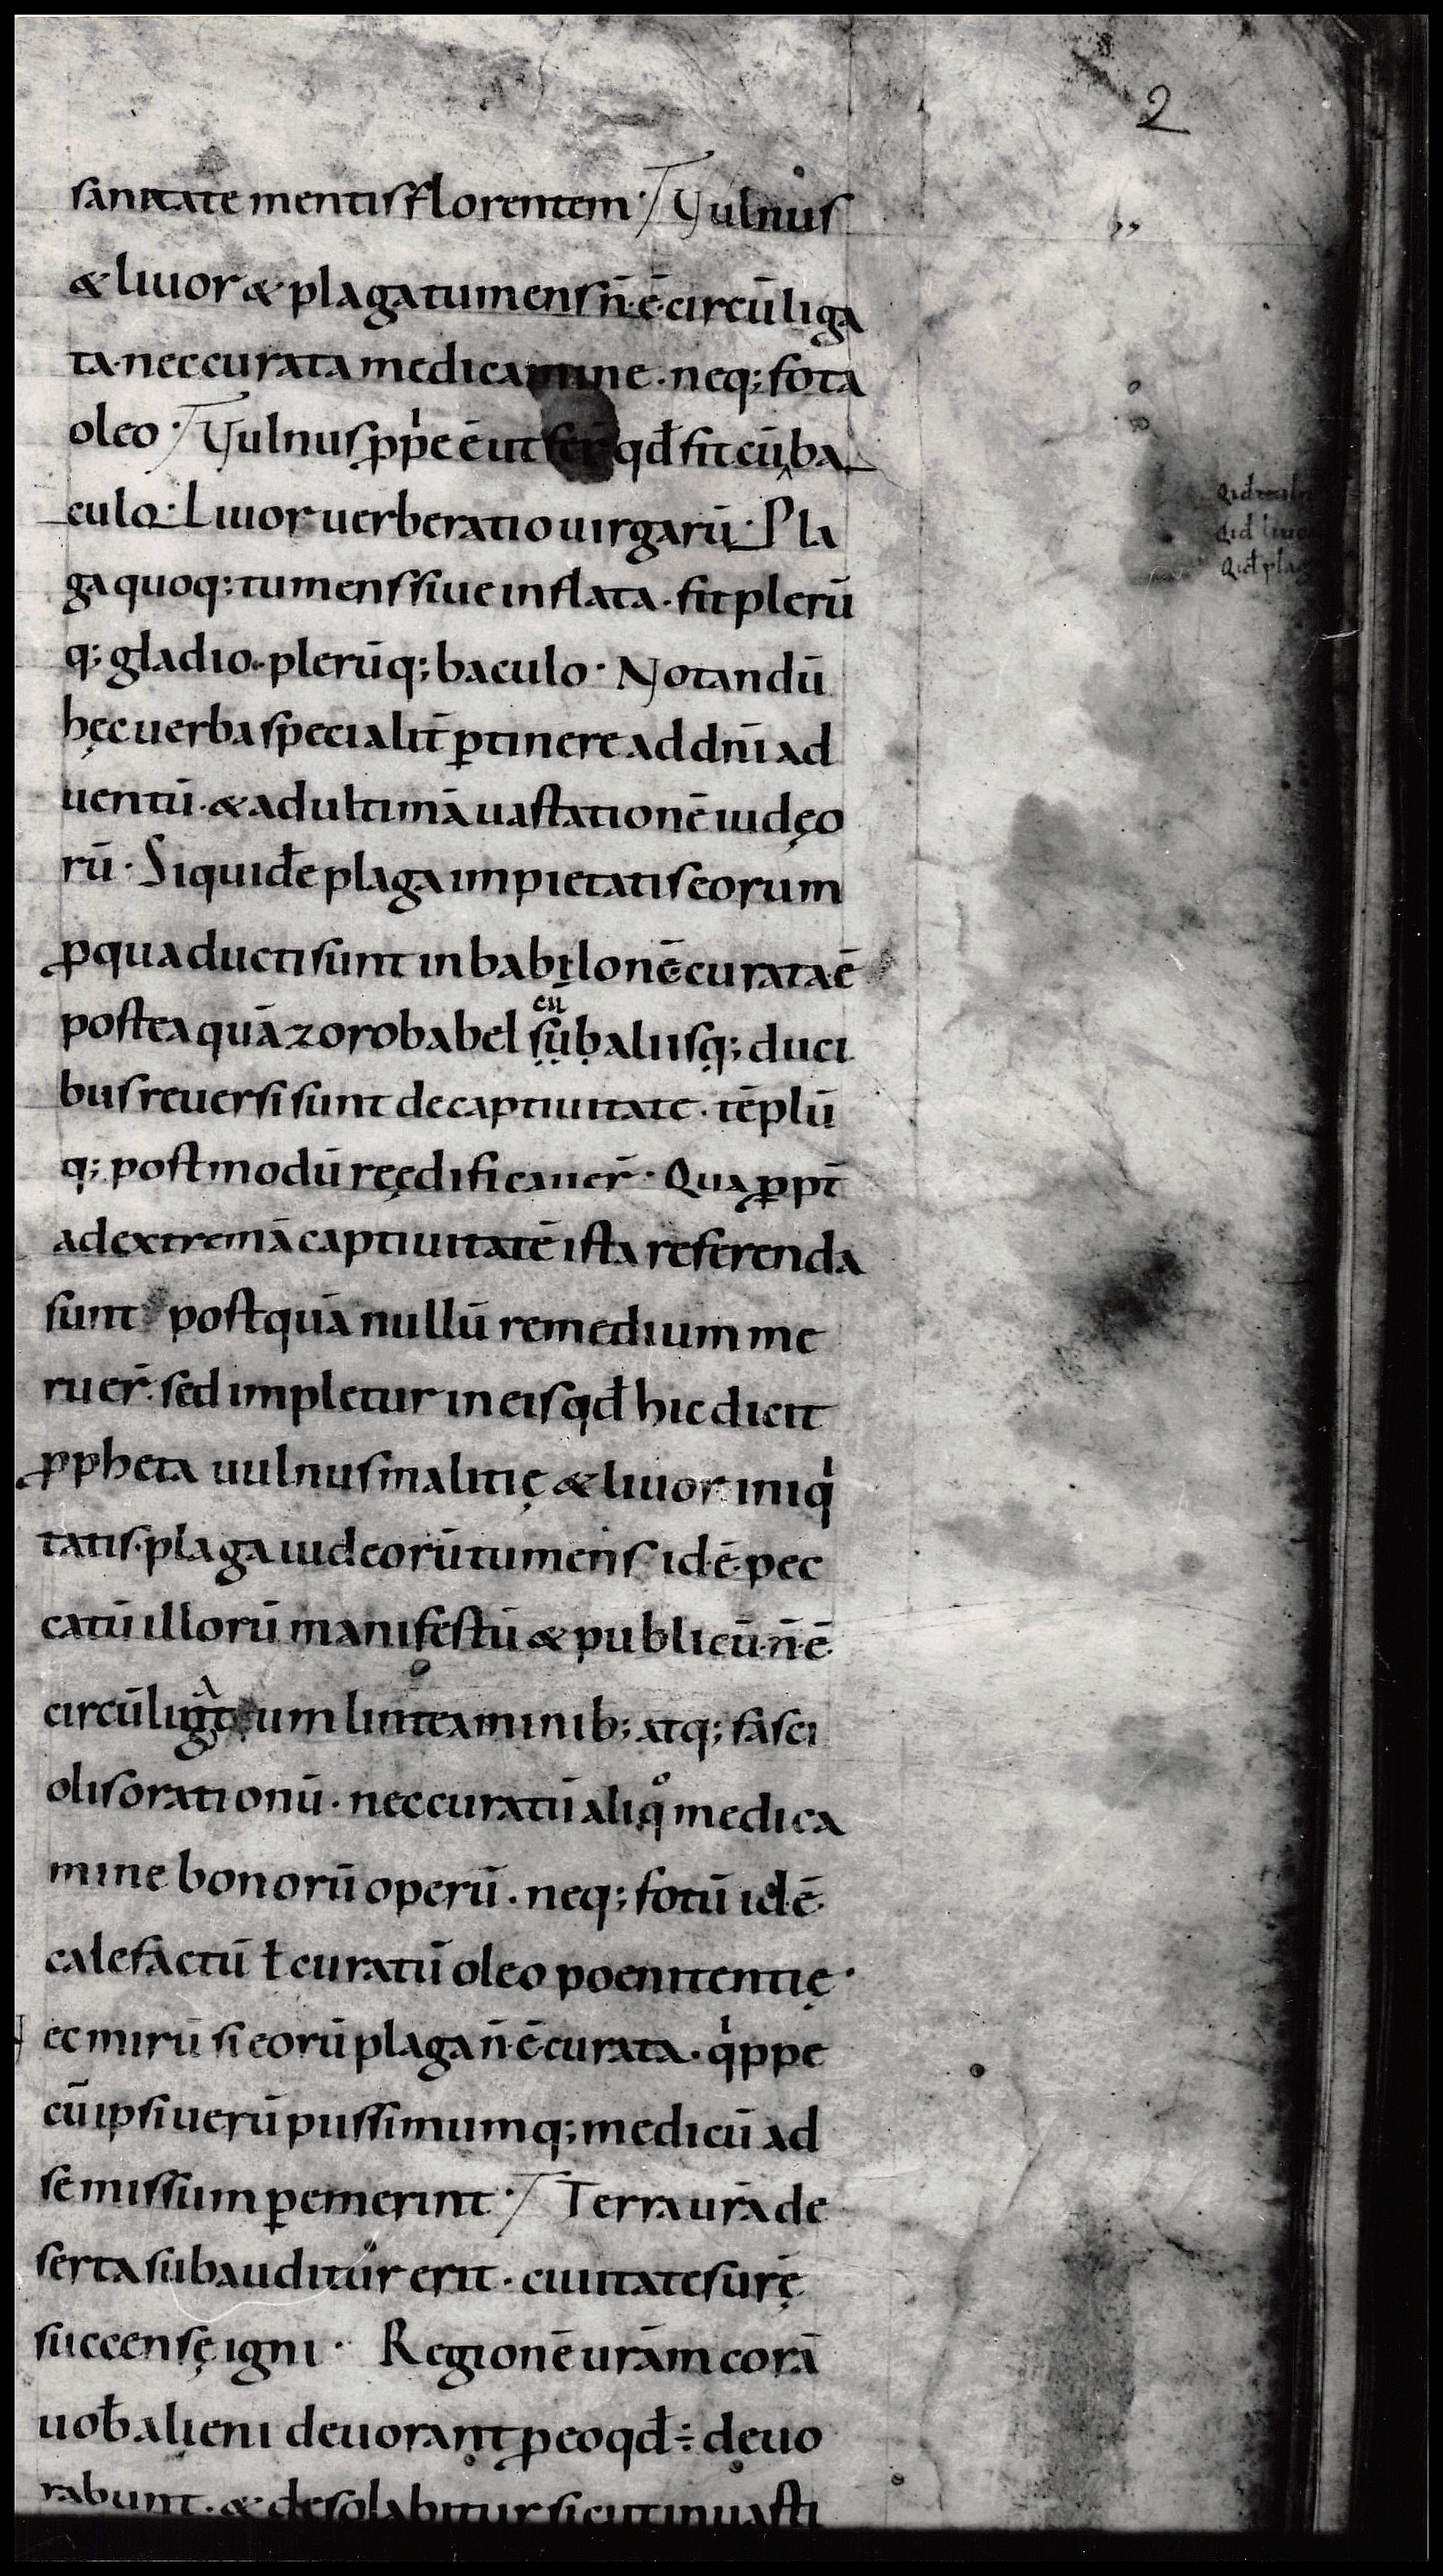 2
sanitate mentis florentem · Vulnus
& liuor & plaga tumens n̄ · ē · circūliga
ta · nec curata medicamine · neq; fota
oleo · Vulnus ꝓp̍e ē ut qđ fit cū ba
culo · Liuor uerberatio uirgarū · Pla
ga quoq; tumens siue inflata · fit plerū
q; gladio · plerūq; baculo · Notandū
hęc uerba specialit̄ ꝑtinere ad dn̄i ad
uentū · & ad ultimā uastationē iudęo
rū · Siquidē plaga impietatis eorum
ꝑ qua ducti sunt in babilonē curata ē
posteaquā zorobabel sūb aliisq; duci
cū
bus reuersi sunt de captiuitate · tēplū
q; postmodū reędificauer̄ · Qua ꝓpt̄
ad extremā captiuitatē ista referenda
sunt postquā nullū remedium me
ruer̄ · sed impletur in eis qđ hic dicit
ꝓpheta uulnus malitię & liuor iniq̍
tatis · plaga iudeorū tumens id · ē · pec
catū illorū manifestū & publicū · n̄ · ē ·
circūligatum linteaminib; atq; fasci
olis orationū · nec curatū aliqͦ medica
mine bonorū operū · neq; fotū id · ē ·
calefactū ł curatū oleo poenitentię ·
Nec mirū si eorū plaga n̄ · ē · curata · q̍ppe
cū ipsi uerū piissimumq; medicū ad
se missum ꝑemerint · Terra ur̄a de
serta subauditur erit · ciuitates ur̄ę
succensę igni · Regionē ur̄am corā
uob̄ alieni deuorant ꝓ eo qđ ÷ deuo
rabunt · & desolabitur sicut in uasti